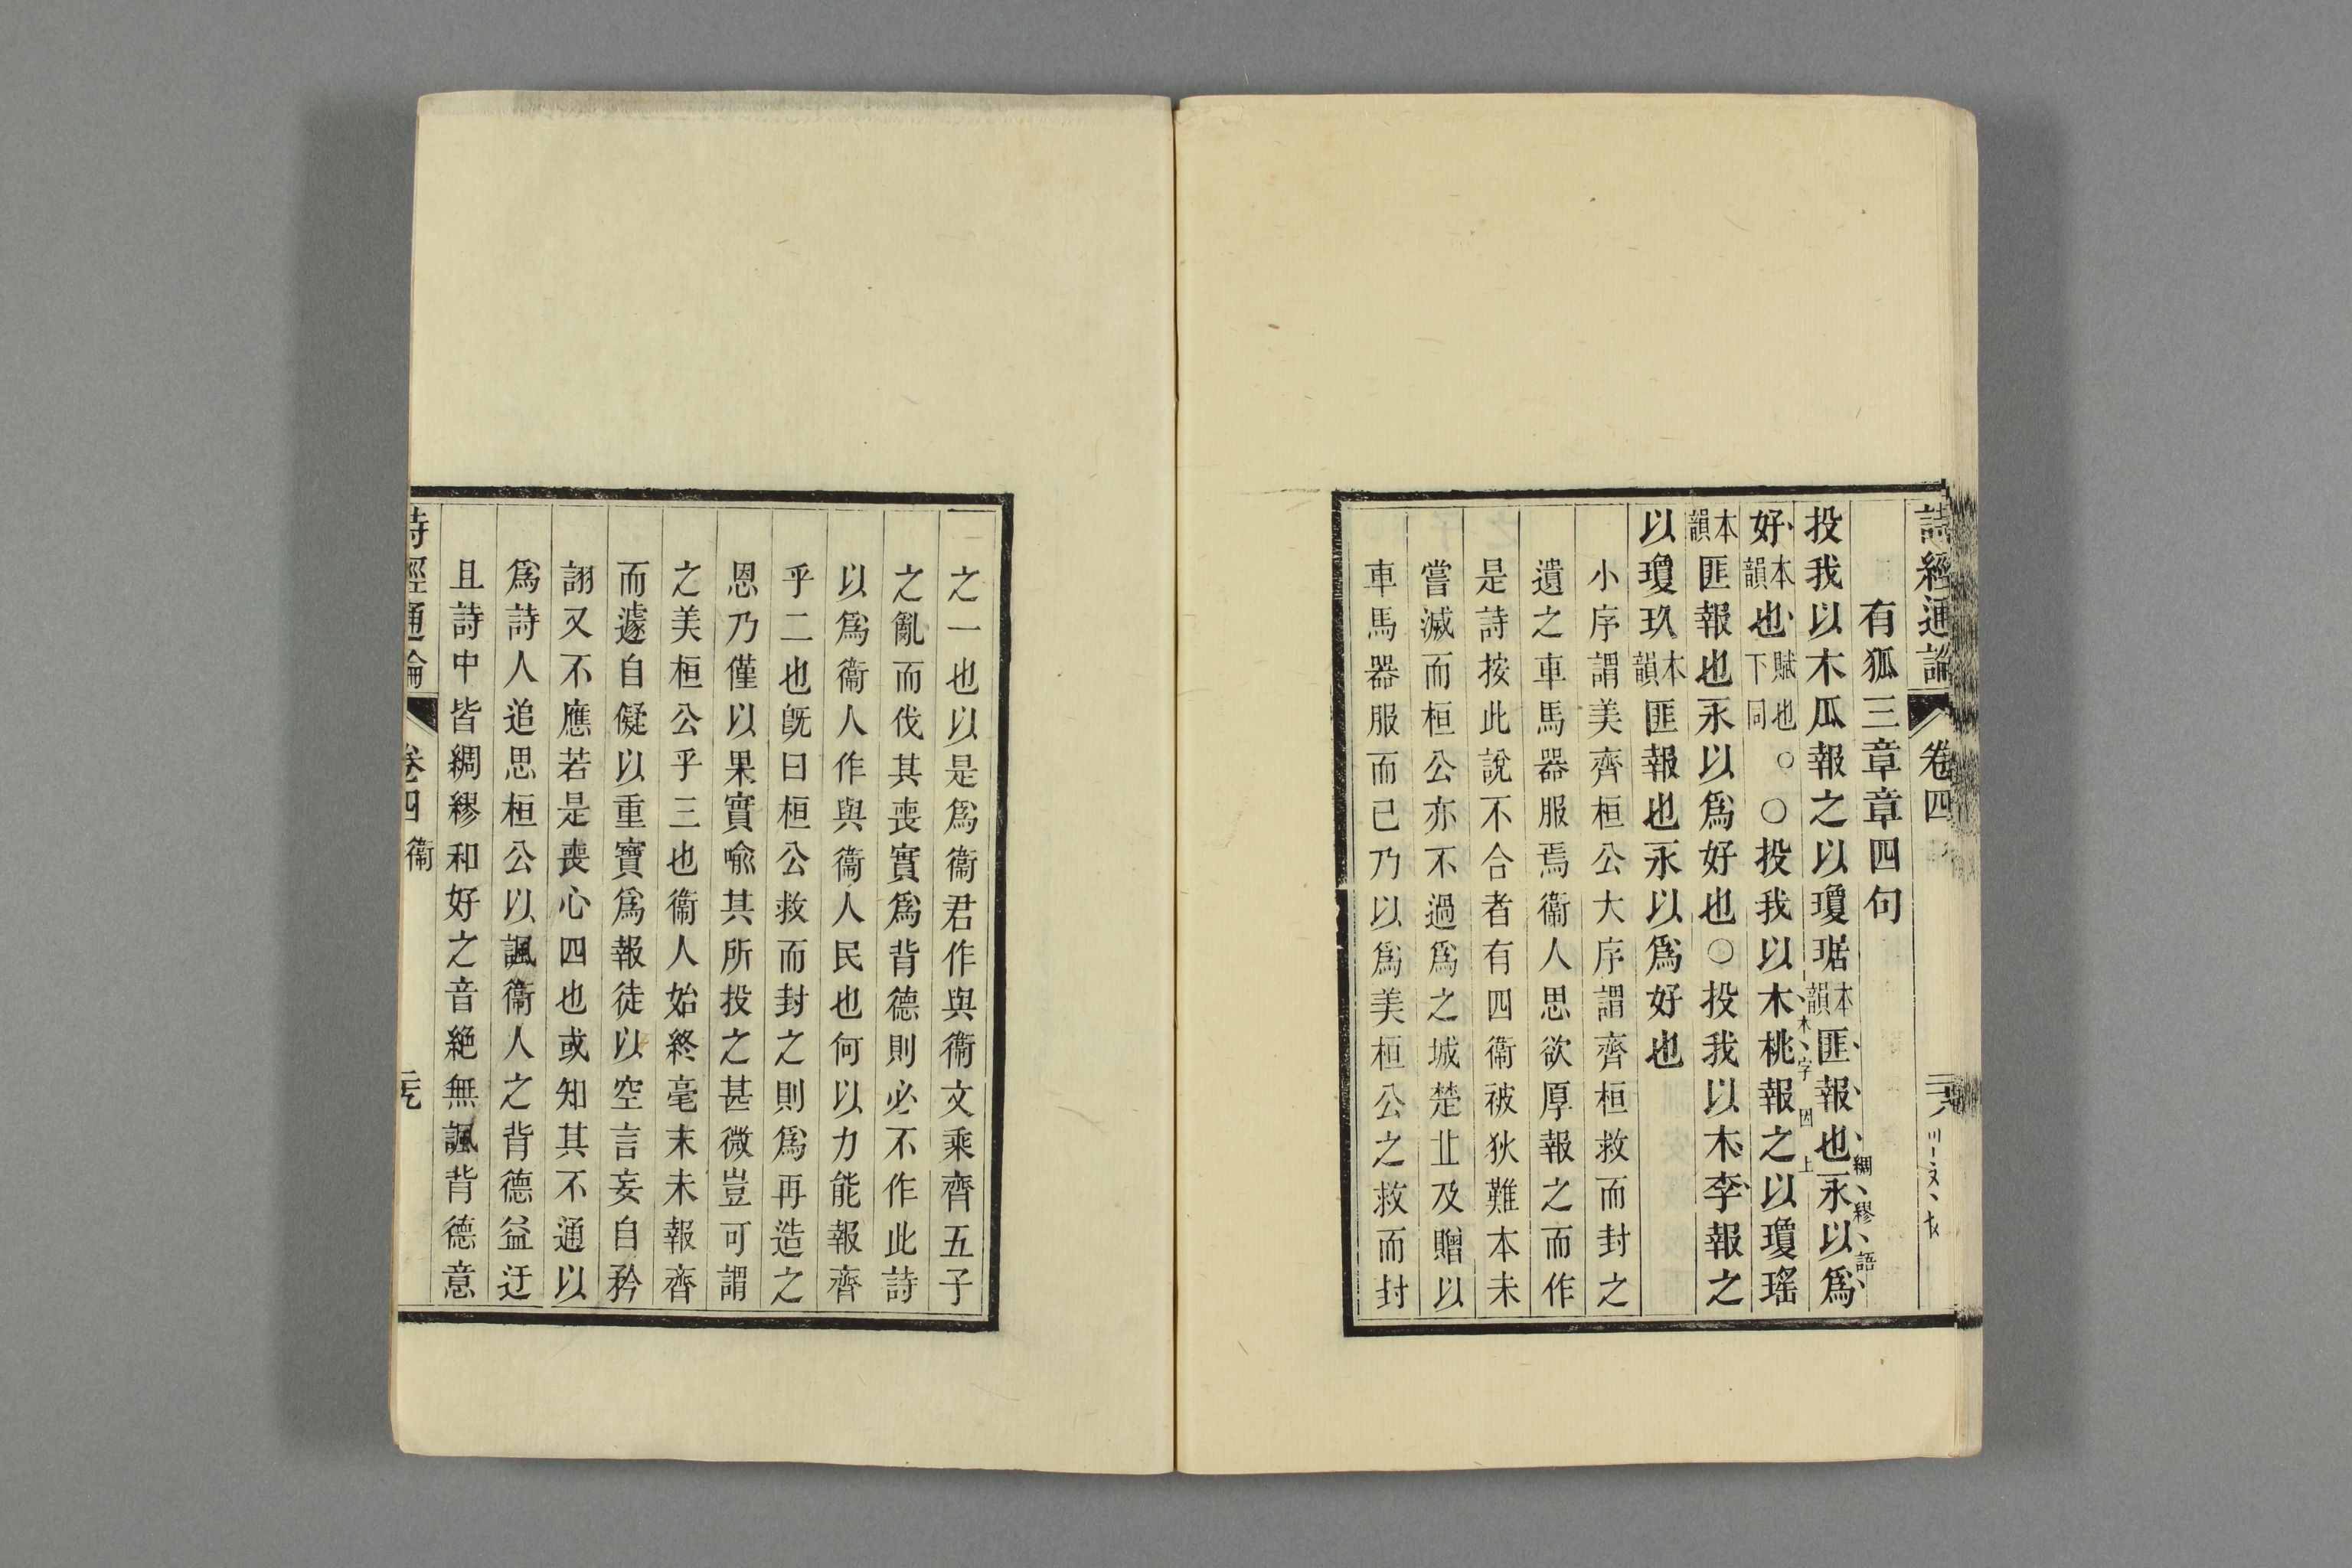 詩經通論 卷四
有狐三章章四句
投我以木瓜報之以瓊琚本韻匪報也永以爲
綢繆語
好本韻也賦也下同○○投我以木桃報之以瓊瑤
木字因上
本韻匪報也永以爲好也○投我以木李報之
以瓊玖本韻匪報也永以爲好也
小序謂美齊桓公大序謂齊桓救而封之
遺之車馬器服焉衞人思欲厚報之而作
是詩按此說不合者有四衞被狄難本未
嘗滅而桓公亦不過爲之城楚丘及贈以
車馬器服而已乃以爲美桓公之救而封
之一也以是爲衞君作與衞文乘齊五子
之亂而伐其喪實爲背德則必不作此詩
以爲衞人作與衞人民也何以力能報齊
乎二也旣曰桓公救而封之則爲再造之
恩乃僅以果實喻其所投之甚微豈可謂
之美桓公乎三也衞人始終毫末未報齊
而遽自儗以重寶爲報徒以空言妄自矜
詡又不應若是喪心四也或知其不通以
爲詩人追思桓公以諷衞人之背德益迂
且詩中皆綢繆和好之音絕無諷背德意
詩經通論 卷四 衞